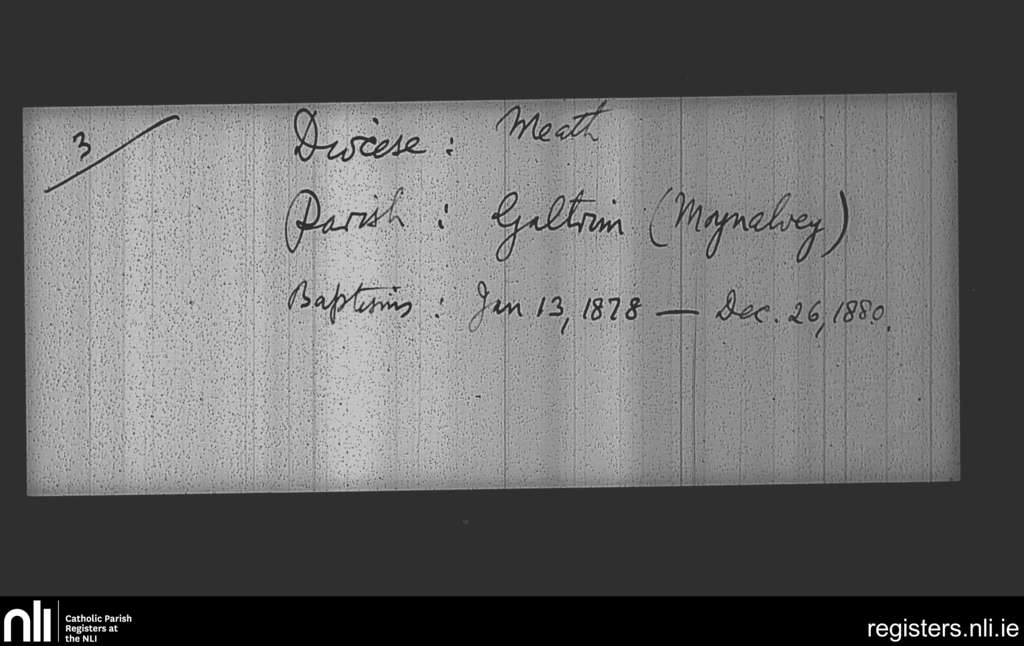 3/
Diocese : Meath
Parish : Galtrim (Moynalvey)
Baptisms : Jan 13, 1878 — Dec. 26, 1880.
nli
Catholic Parish
Registers at
the NLI
registers.nli.ie